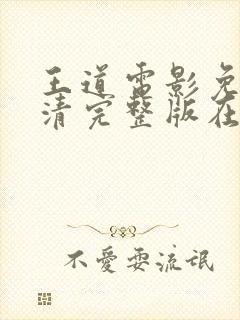 王道電影免
清完整版在
不愛耍流氓